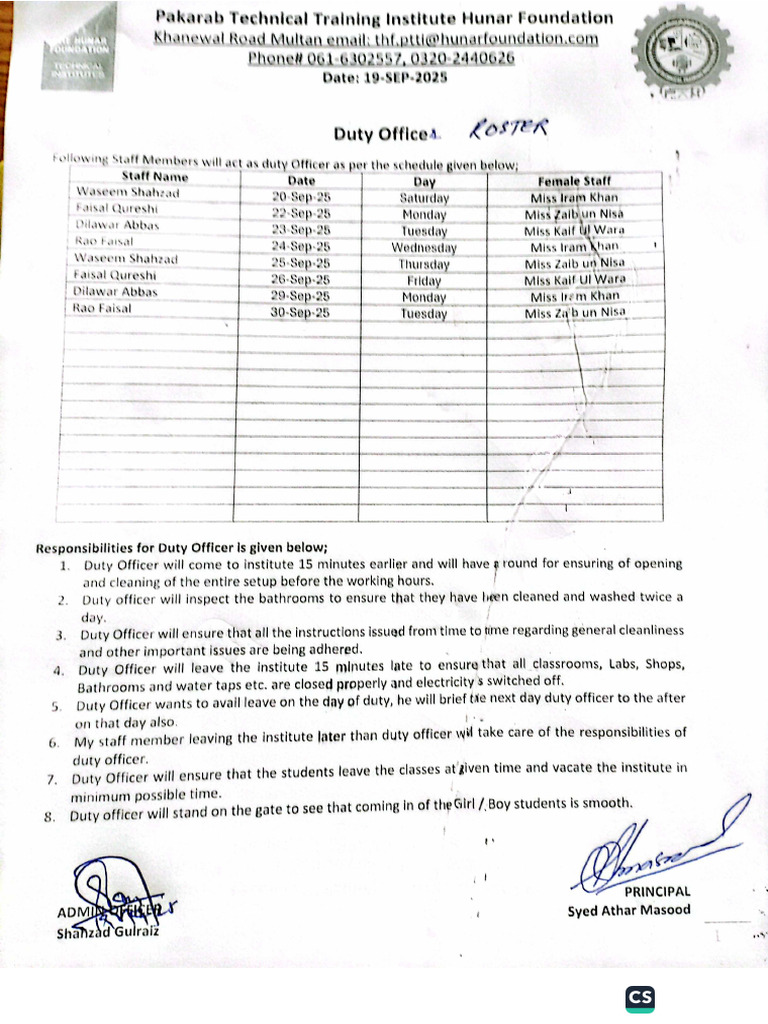 THE HUNAR
FOUNDATION
TECHNICAL
INSTITUTES
Pakarab Technical Training Institute Hunar Foundation
Khanewal Road Multan email: thf.ptti@hunarfoundation.com
Phone# 061-6302557, 0320-2440626
Date: 19-SEP-2025
Duty Office ROSTER
Following Staff Members will act as duty Officer as per the schedule given below;
Staff Name Date Day Female Staff
Waseem Shahzad 20-Sep-25 Saturday Miss Iram Khan
Faisal Qureshi 22-Sep-25 Monday Miss Zaib un Nisa
Dilawar Abbas 23-Sep-25 Tuesday Miss Kaif Ul Wara
Rao Faisal 24-Sep-25 Wednesday Miss Iram Khan
Waseem Shahzad 25-Sep-25 Thursday Miss Zaib un Nisa
Faisal Qureshi 26-Sep-25 Friday Miss Kaif Ul Wara
Dilawar Abbas 29-Sep-25 Monday Miss Iram Khan
Rao Faisal 30-Sep-25 Tuesday Miss Zaib un Nisa
Responsibilities for Duty Officer is given below;
1. Duty Officer will come to institute 15 minutes earlier and will have a round for ensuring of opening
and cleaning of the entire setup before the working hours.
2. Duty officer will inspect the bathrooms to ensure that they have been cleaned and washed twice a
day.
3. Duty Officer will ensure that all the instructions issued from time to time regarding general cleanliness
and other important issues are being adhered.
4. Duty Officer will leave the institute 15 minutes late to ensure that all classrooms, Labs, Shops,
Bathrooms and water taps etc. are closed properly and electricity's switched off.
5. Duty Officer wants to avail leave on the day of duty, he will brief the next day duty officer to the after
on that day also.
6. My staff member leaving the institute later than duty officer will take care of the responsibilities of
duty officer.
7. Duty Officer will ensure that the students leave the classes at given time and vacate the institute in
minimum possible time.
8. Duty officer will stand on the gate to see that coming in of the Girl / Boy students is smooth.
ADMIN OFFICER
Shahzad Gulraiz
PRINCIPAL
Syed Athar Masood
CS